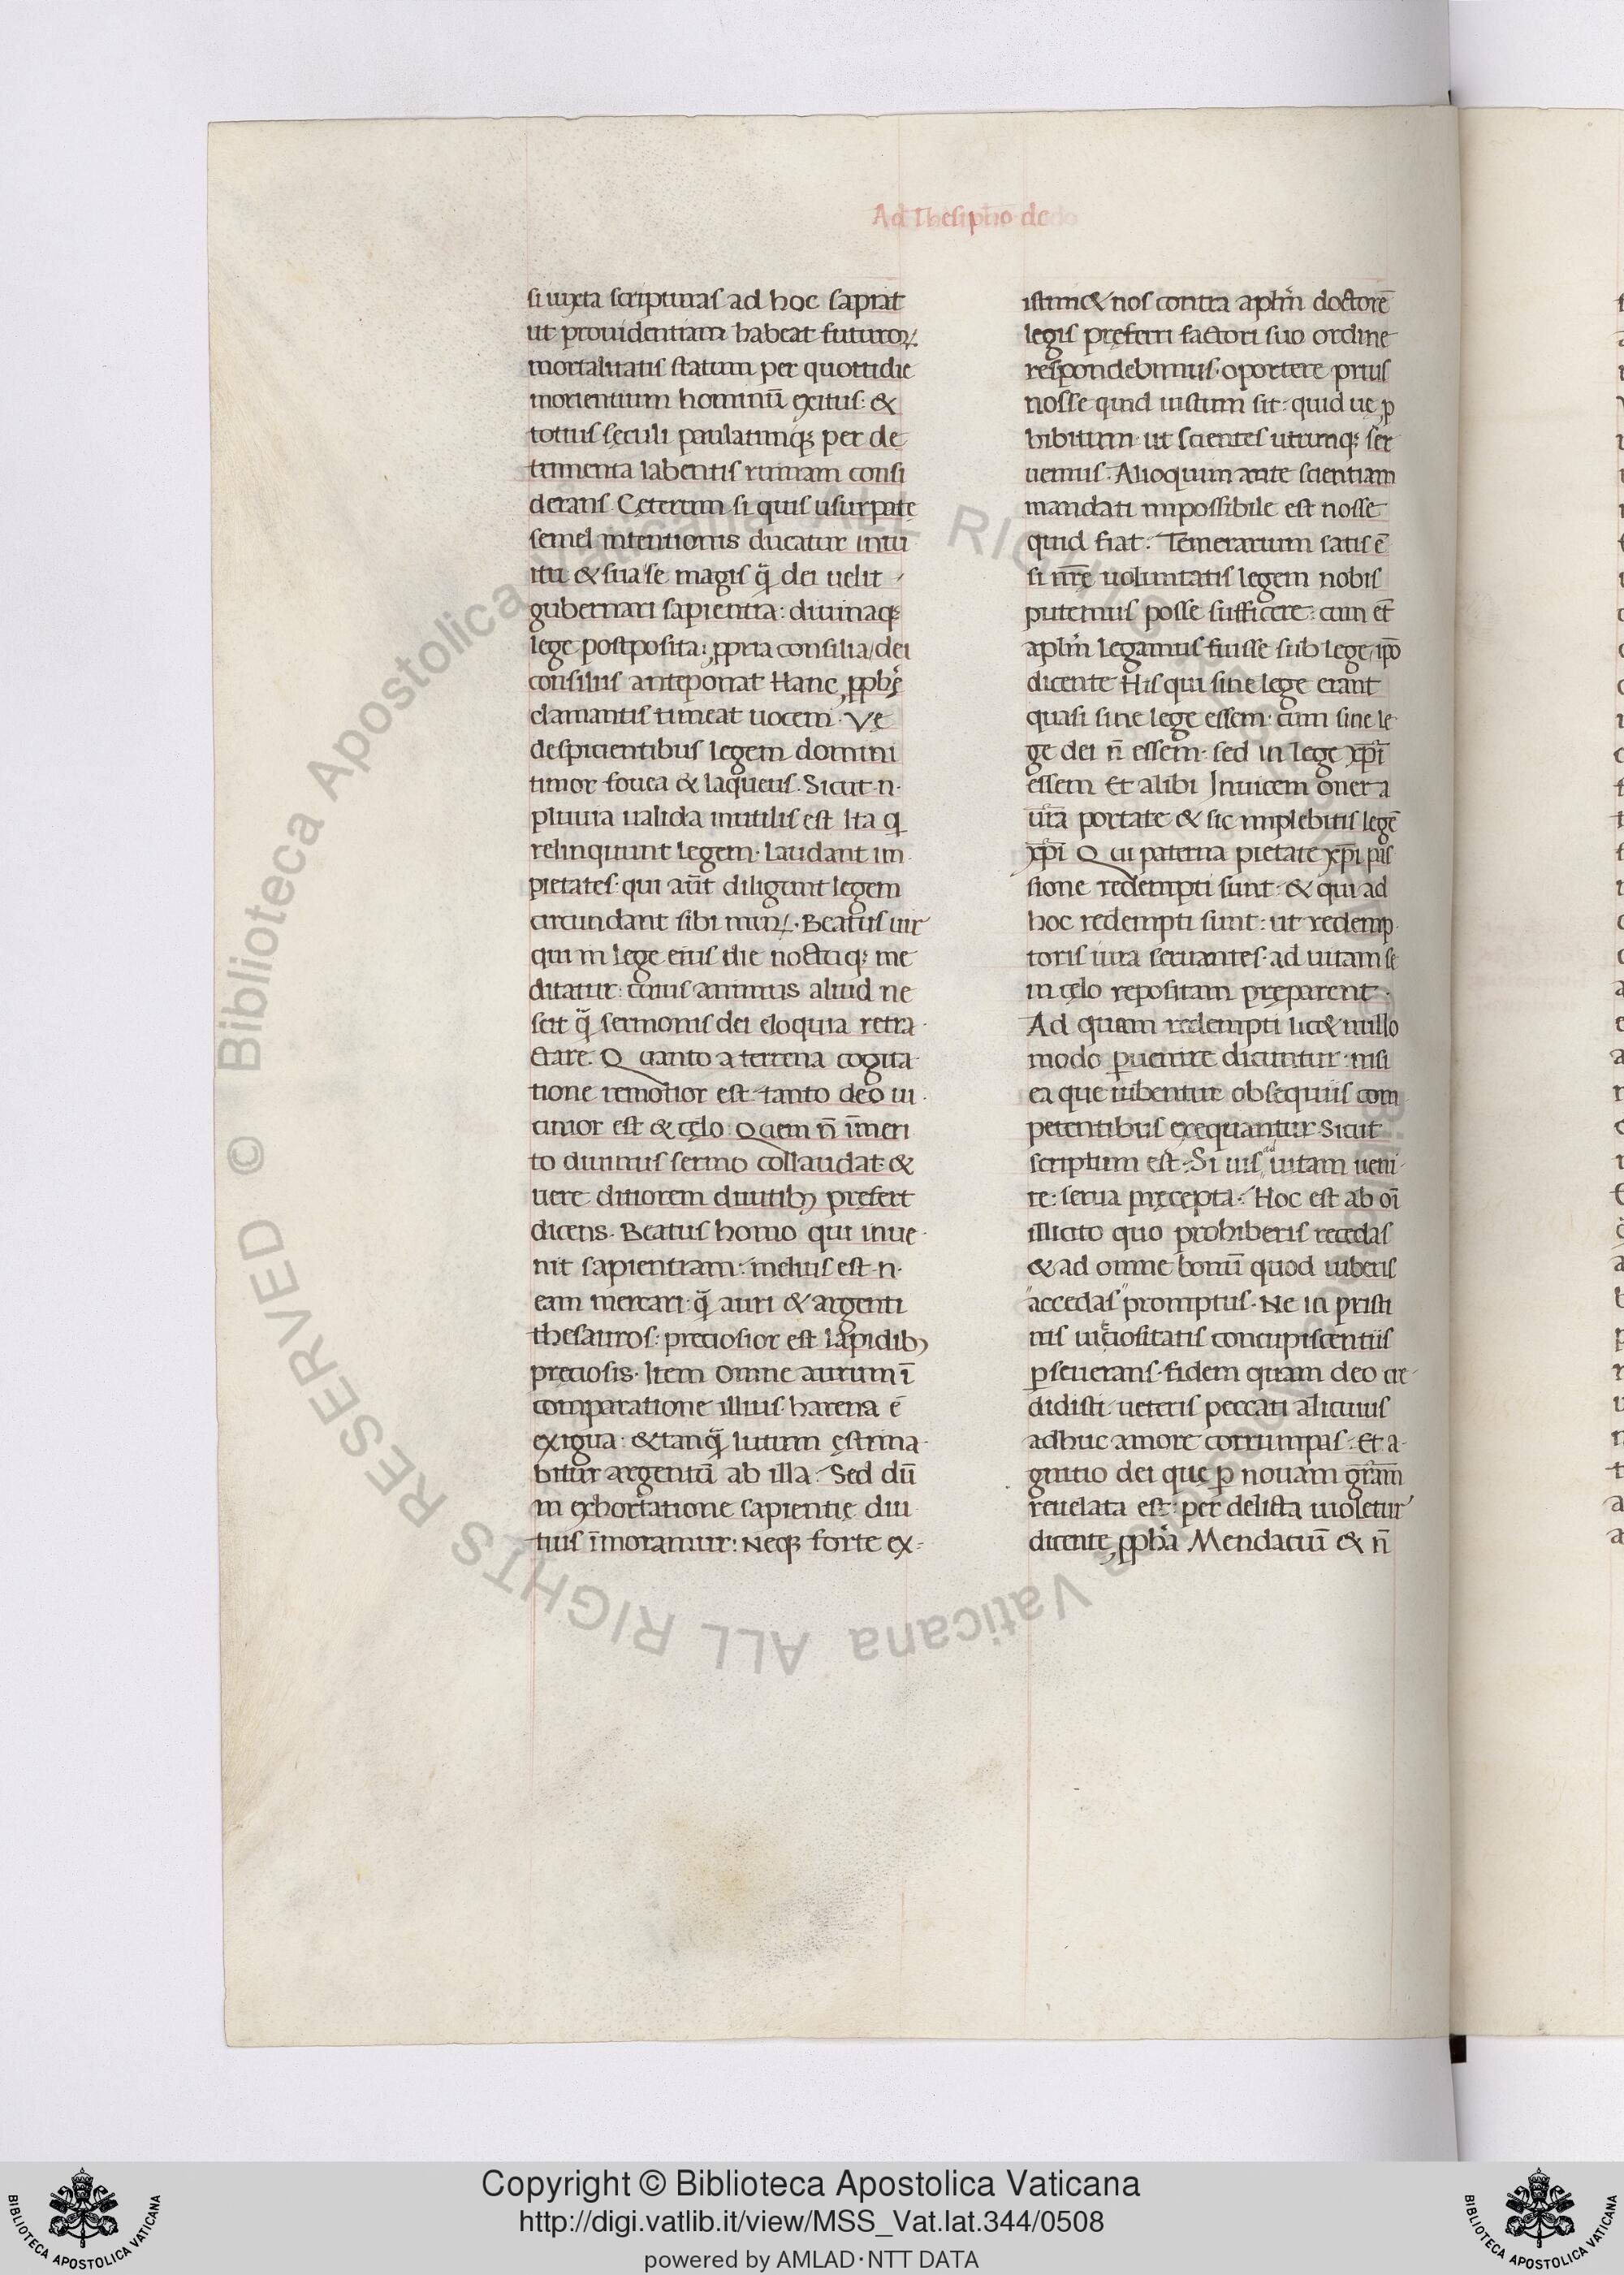 Ad Thesipho de do
si iuxta scripturas ad hoc sapiat
ut prouidentiam habeat futuroꝝ
mortalitatis statum per quottidie
morientium hominū exitus: &
totius sęculi paulatimqꝫ per de
trimenta labentis ruinam consi
derans. Ceterum si quis usurpate
semel intentionis ducatur intu
itu & sua se magis q̄ dei uelit
gubernari sapientia: diuinaqꝫ
lege postposita: ꝓpria consilia dei
consiliis anteponat Hanc ꝓphę
clamantis timeat uocem. Vę
despicientibus legem domini
timor fouea & laqueus. Sicut .n.
pluuia ualida inutilis est Ita q
relinquunt legem. laudant im
pietates: qui aūt diligunt legem
circundant sibi muꝝ. Beatus uir
qui in lege eius die noctuqꝫ me
ditatur: cuius animus aliud ne
scit q̄ sermonis dei eloquia retra
ctare. Quanto a terrena cogita
tione remotior est tanto deo ui
cinior est & cęlo. Quem n̄ īmeri
to diuinus sermo collaudat &
uere ditiorem diuitibꝫ prefert
dicens. Beatus homo qui inue
nit sapientiam: melius est .n.
eam mercari q̄ auri & argenti
thesauros: preciosior est lapidibꝫ
preciosis. Item omne aurum ī
comparatione illius harena ē
exigua: & tanq̄ lutum ęstima
bitur argentū ab illa. Sed dū
in exhortatione sapientię diu
tius īmoramur: Neqꝫ forte ex
istim& nos contra aplm̄ doctorē
legis pręferri factori suo ordine
respondebimus. oportere prius
nosse quid iustum sit: quid ue ꝓ
hibitum ut scientes utrumqꝫ ser
uemus. Alioquin ante scientiam
mandati impossibile est nosse
quid fiat. Temerarium satis ē
si nr̄ę uoluntatis legem nobis
putemus posse sufficere: cum et̄
aplm̄ legamus fuisse sub lege, ip̄o
dicente His qui sine lege erant
quasi sine lege essem: cum sine le
ge dei n̄ essem: sed in lege xp̄i
essem Et alibi Inuicem onera
ur̄a portate & sic implebitis legē
xp̄i Qui paterna pietate xp̄i pas
sione redempti sunt: & qui ad
hoc redempti sunt: ut redemp
toris iura seruantes ad uitam se
in cęlo repositam pręparent.
Ad quam redempti lic& nullo
modo ꝑuenire dicuntur nisi
ea que iubentur obsequiis com
petentibus exequantur Sicut
scriptum est. Si uis ad uitam ueni
re: serua pręcepta. Hoc est ab oī
illicito quo prohiberis recedas
& ad omne bonū quod iuberis
accedas promptus. Ne in pristi
nis uiciositatis concupiscentiis
ꝑseuerans fidem quam deo cre
didisti ueteris peccati alicuius
adhuc amore corrumpas. Et a
gnitio dei quę ꝑ nouam gr̄am
reuelata est: per delicta uioletur
dicente ꝓpha Mendaciū & n̄
Copyright © Biblioteca Apostolica Vaticana
http://digi.vatlib.it/view/MSS_Vat.lat.344/0508
powered by AMLAD·NTT DATA
BIBLIOTECA APOSTOLICA VATICANA
BIBLIOTECA APOSTOLICA VATICANA
© Biblioteca Apostolica Vaticana ALL RIGHTS RESERVED
© Biblioteca Apostolica Vaticana ALL RIGHTS RESERVED